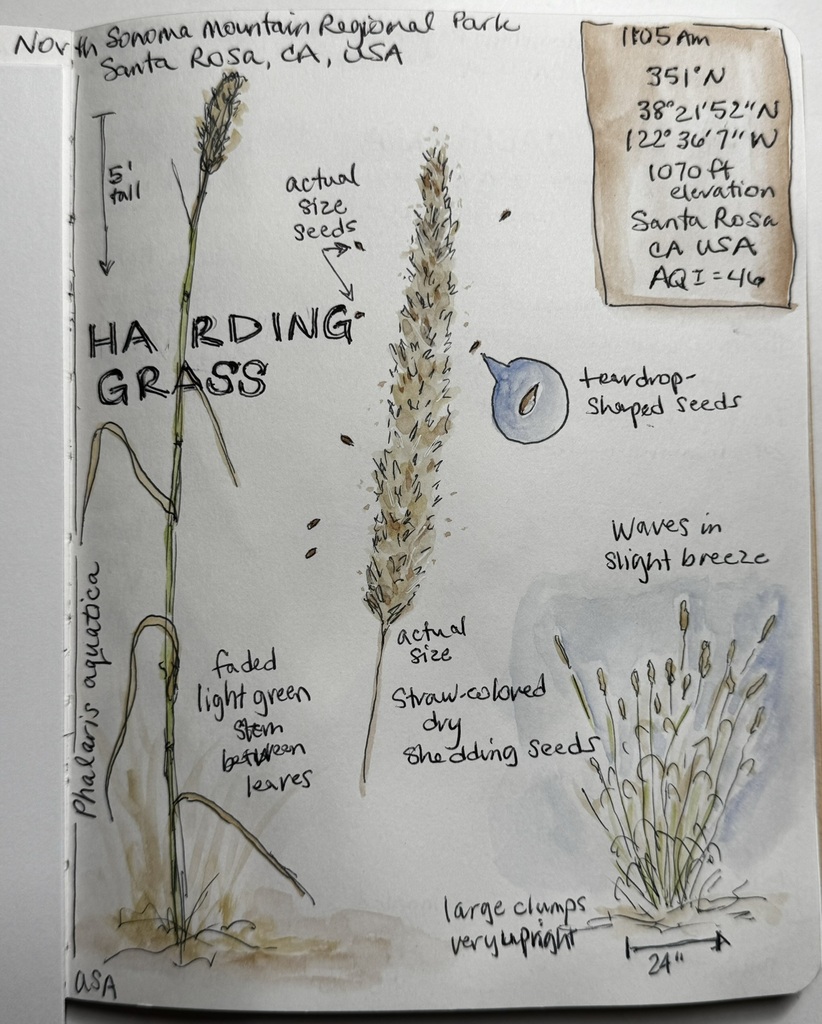 North Sonoma Mountain Regional Park
Santa Rosa, CA, USA
11:05 Am
351°N
38°21'52"N
122°36'7"W
1070 ft
elevation
Santa Rosa
CA USA
AQI = 46
5'
tall
actual
size
seeds
HARDING
GRASS
teardrop-
shaped seeds
waves in
slight breeze
Phalaris aquatica
faded
light green
stem
between
leaves
actual
size
Straw-colored
dry
shedding seeds
large clumps
very upright
24"
USA